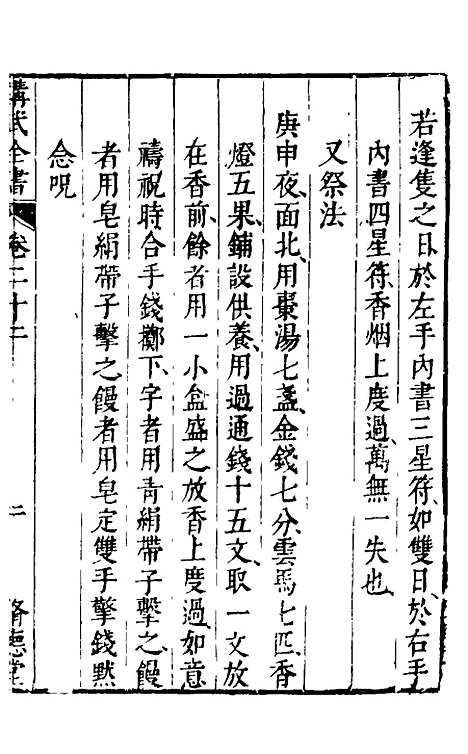 若逢隻之日於左手內書三星符、如雙日、於右手
內書四星符、香烟上度過、萬無一失也
又祭法
庚申夜、面北、用棗湯七盞、金錢七分、雲馬七匹、香
燈五果、鋪設供養、用過通錢十五文、取一文放
在香前、餘者用一小盒盛之放香上度過、如意
禱祝時合手錢擲下字者用青絹帶子擊之、饅
者用皂絹帶子擊之饅者用皂定雙手擎錢黙
念呪
講武全書
卷二十二
二